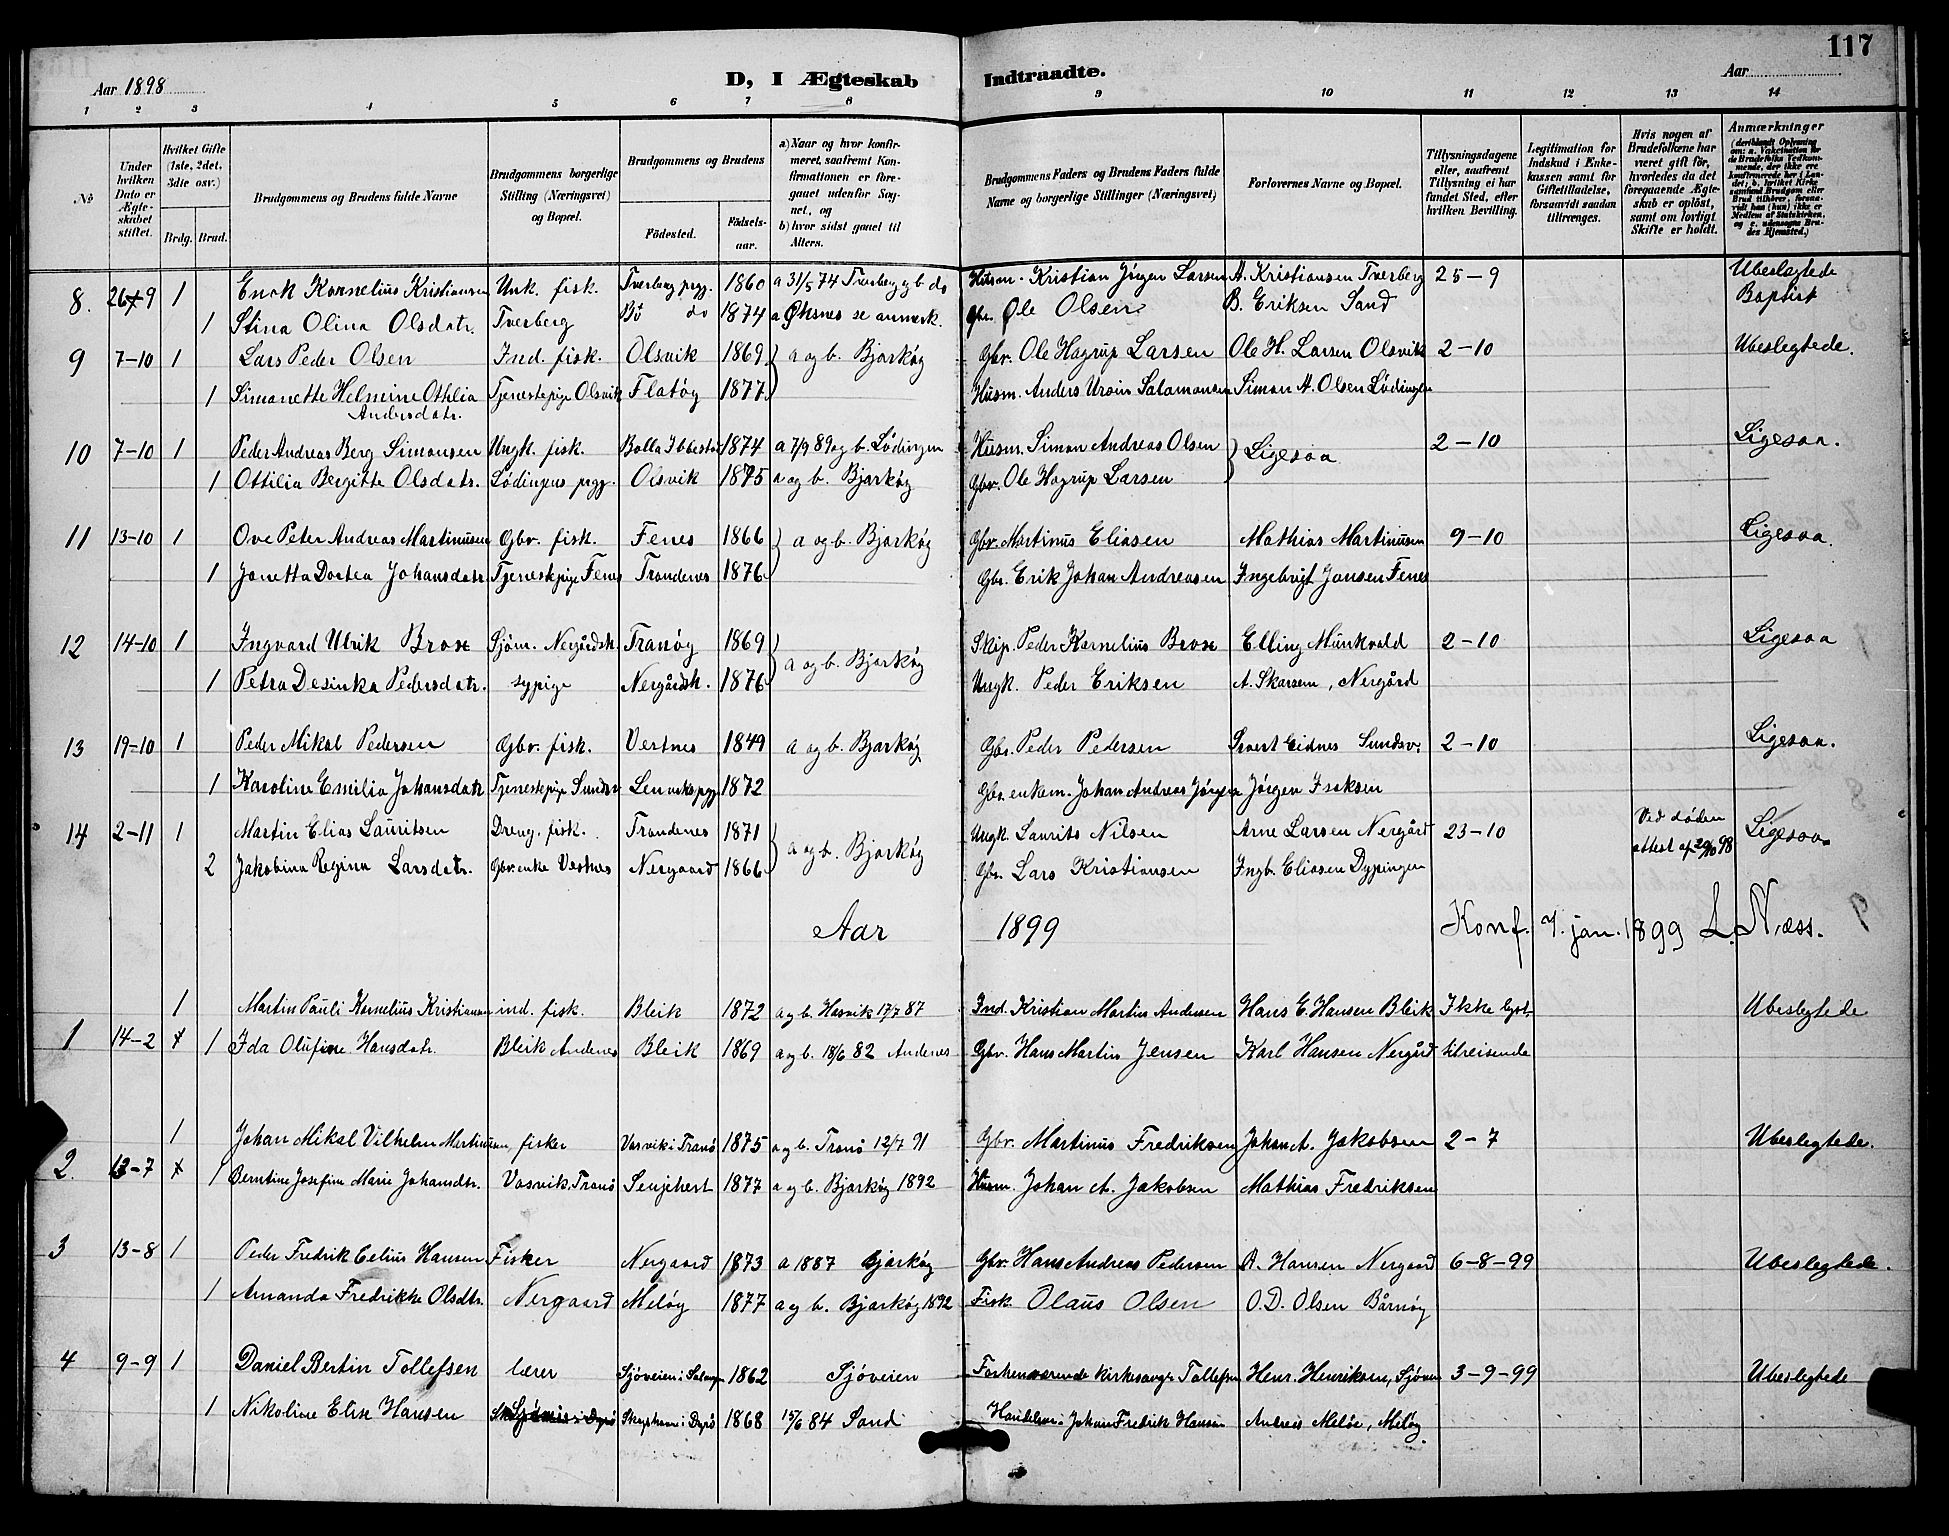 117
Aar 1898 D, I Ægteskab Indtraadte. Aar
1 2 3 4 5 6 7 8 9 10 11 12 13 14
No
Under hvilken Dato er Ægteskabet stiftet.
Hvilket Gifte (1ste, 2det, 3die osv.)
Brdg. Brud.
Brudgommens og Brudens fulde Navne
Brudgommens borgerlige Stilling (Næringsvei) og Bopæl.
Brudgommens og Brudens
Födested. Födselsaar.
a) Naar og hvor konfirmeret, saafremt Konfirmationen er foregaaet udenfor Sognet, og
b) hvor sidst gaaet til Alters.
Brudgommens Faders og Brudens Faders fulde Navne og borgerlige Stillinger (Næringsvei)
Forlovernes Navne og Bopæl.
Tillysningsdagene eller, saafremt Tillysning ei har fundet Sted, efter hvilken Bevilling.
Legitimation for Indskud i Enkekassen samt for Giftetilladelse, forsaavidt saadan tiltrænges.
Hvis nogen af Brudefolkene har været gift för, hvorledes da det foregaaende Ægteskab er oplöst, samt om lovligt Skifte er holdt.
Anmærkninger (deriblandt Oplysning om: a. Vakcination for de Brudefolks Vedkommende, der ikke ere konfirmerede her i Landet; b. hvilket Kirkesamfund Brudgom eller Brud tilhörer, forsaavidt han (hun) ikke er Medlem af Statskirken, og c. udensogns Brudes Hjemsted.)
8. 26-9 1 Enok Kornelius Kristiansen Unk. fisk. Tverberg prgj. 1860 a 31/5 74 Tverberg g b do Husm. Kristian Jörgen Larsen A. Kristiansen Tverberg 25-9 Ubeslegtede Baptist
1 Stina Olina Olsdatr. Tverberg Bö do 1874 a Öksnes se anmerk. Gbr. Ole Olsen B. Eriksen Sand
9 7-10 1 Lars Peder Olsen Ind. fisk. Olsvik 1869 a og b. Bjarköy Gbr. Ole Hagrup Larsen Ole H. Larsen Olsvik 2-10 Ubeslegtede.
1 Simonette Helmine Othlia Andersdatr. Tjenestepige Olsvik Flatöy 1877 Husm. Anders Ursin Salamonsen Simon A. Olsen Lödingen
10 7-10 1 Peder Andreas Berg Simonsen Ungk. fisk. Bolla Ibbestad 1874 a 7/9 89 og b. Lödingen Husm. Simon Andreas Olsen Ligesaa 2-10 Ligesaa.
1 Ottilia Bergitte Olsdatr. Lödingens prgj. Olsvik 1875 a og b. Bjarköy Gbr. Ole Hagrup Larsen
11 13-10 1 Ove Peter Andreas Martinusen Gbr. fisk. Fenes 1866 a og b. Bjarköy Gbr. Martinus Eliasen Mathias Martinusen 9-10 Ligesaa.
1 Janetta Dortea Johansdatr. Tjenestepige Fenes Trondenes 1876 Gbr. Erik Johan Andreasen Ingebrigt Jansen Fenes
12 14-10 1 Ingvard Ulrik Brox Sjöm. Nergårdsh. Tranöy 1869 a og b. Bjarköy Skip. Peder Kornelius Brox Elling Munkvold 2-10 Ligesaa
1 Petra Desinka Pedersdatr. sypige Nergårdsh. 1876 Ungk. Peder Eriksen A. Skarsem, Nergård
13 19-10 1 Peder Mikal Pedersen Gbr. fisk. Vestnes 1849 a og b. Bjarköy Gbr. Peder Pedersen Sivert Eidnes Sundsv. 2-10 Ligesaa.
1 Karoline Emilia Johansdatr Tjenestepige Sundsv Lenvikspgj 1872 Gbr. enkem. Johan Andreas Jörgen Jörgen Isaksen
14 2-11 1 Martin Elias Lauritsen Dreng. fisk. Trondenes 1871 a og b. Bjarköy Ungk Laurits Nilsen Arne Larsen Nergård 23-10 Ved döden attest af 29/10 98 Ligesaa.
2 Jakobina Regina Larsdatr. Gbr. enke Vestnes Nergaard 1866 Gbr. Lars Kristiansen Ingb. Eliasen Dypingen
Aar 1899 Konf. 7. jan. 1899 L. Næss.
1 14-2 1 Martin Pauli Kornelius Kristiansen ind. fisk. Bleik 1872 a g b. Hasvik 17/7 87 Ind. Kristian Martin Andersen Hans E. Hansen Bleik Ikke lyst Ubeslegtede
1 Ida Olufine Hansdatr. Bleik Andenes Bleik 1869 a og b. 18/6 82 Andenes Gbr. Hans Martin Jensen Karl Hansen Nergård tilreisende
2. 12-7 1 Johan Mikal Vilhelm Martinusen fisker Vasvik i Tranö 1875 a og b. Tranö 12/7 91 Gbr. Martinus Fredriksen Johan A. Jakobsen 2-7 Ubeslegtede.
1 Berntine Josefine Marie Johansdtr. Vasvik, Tranö Senjehest 1877 a g b. Bjarköy 1892 Husm. Johan A. Jakobsen Mathias Fredriksen
3 13-8 1 Peder Fredrik Celius Hansen Fisker Nergaard 1873 a 1887 Bjarköy Gbr. Hans Andreas Pedersen A. Hansen Nergaard 6-8-99 Ubeslegtede.
1 Amanda Fredrikke Olsdtr. Nergaard Melöy 1877 a og b. Bjarköy 1892 Fisk. Olaus Olsen O. D. Olsen Bårnöy
4 9-9 1 Daniel Bertin Tollefsen lærer Sjöveien i Salang 1862 Sjöveien Forhenværende kirkesanger Tollefsen Henr. Henriksen, Sjöveien 3-9-99 Ubeslegtede
1 Nikoline Elise Hansen Skrpshavn i Dyrö 1868 15/6 84 Sand Handelsm. Johan Fredrik Hansen Andreas Melöe, Melöy.